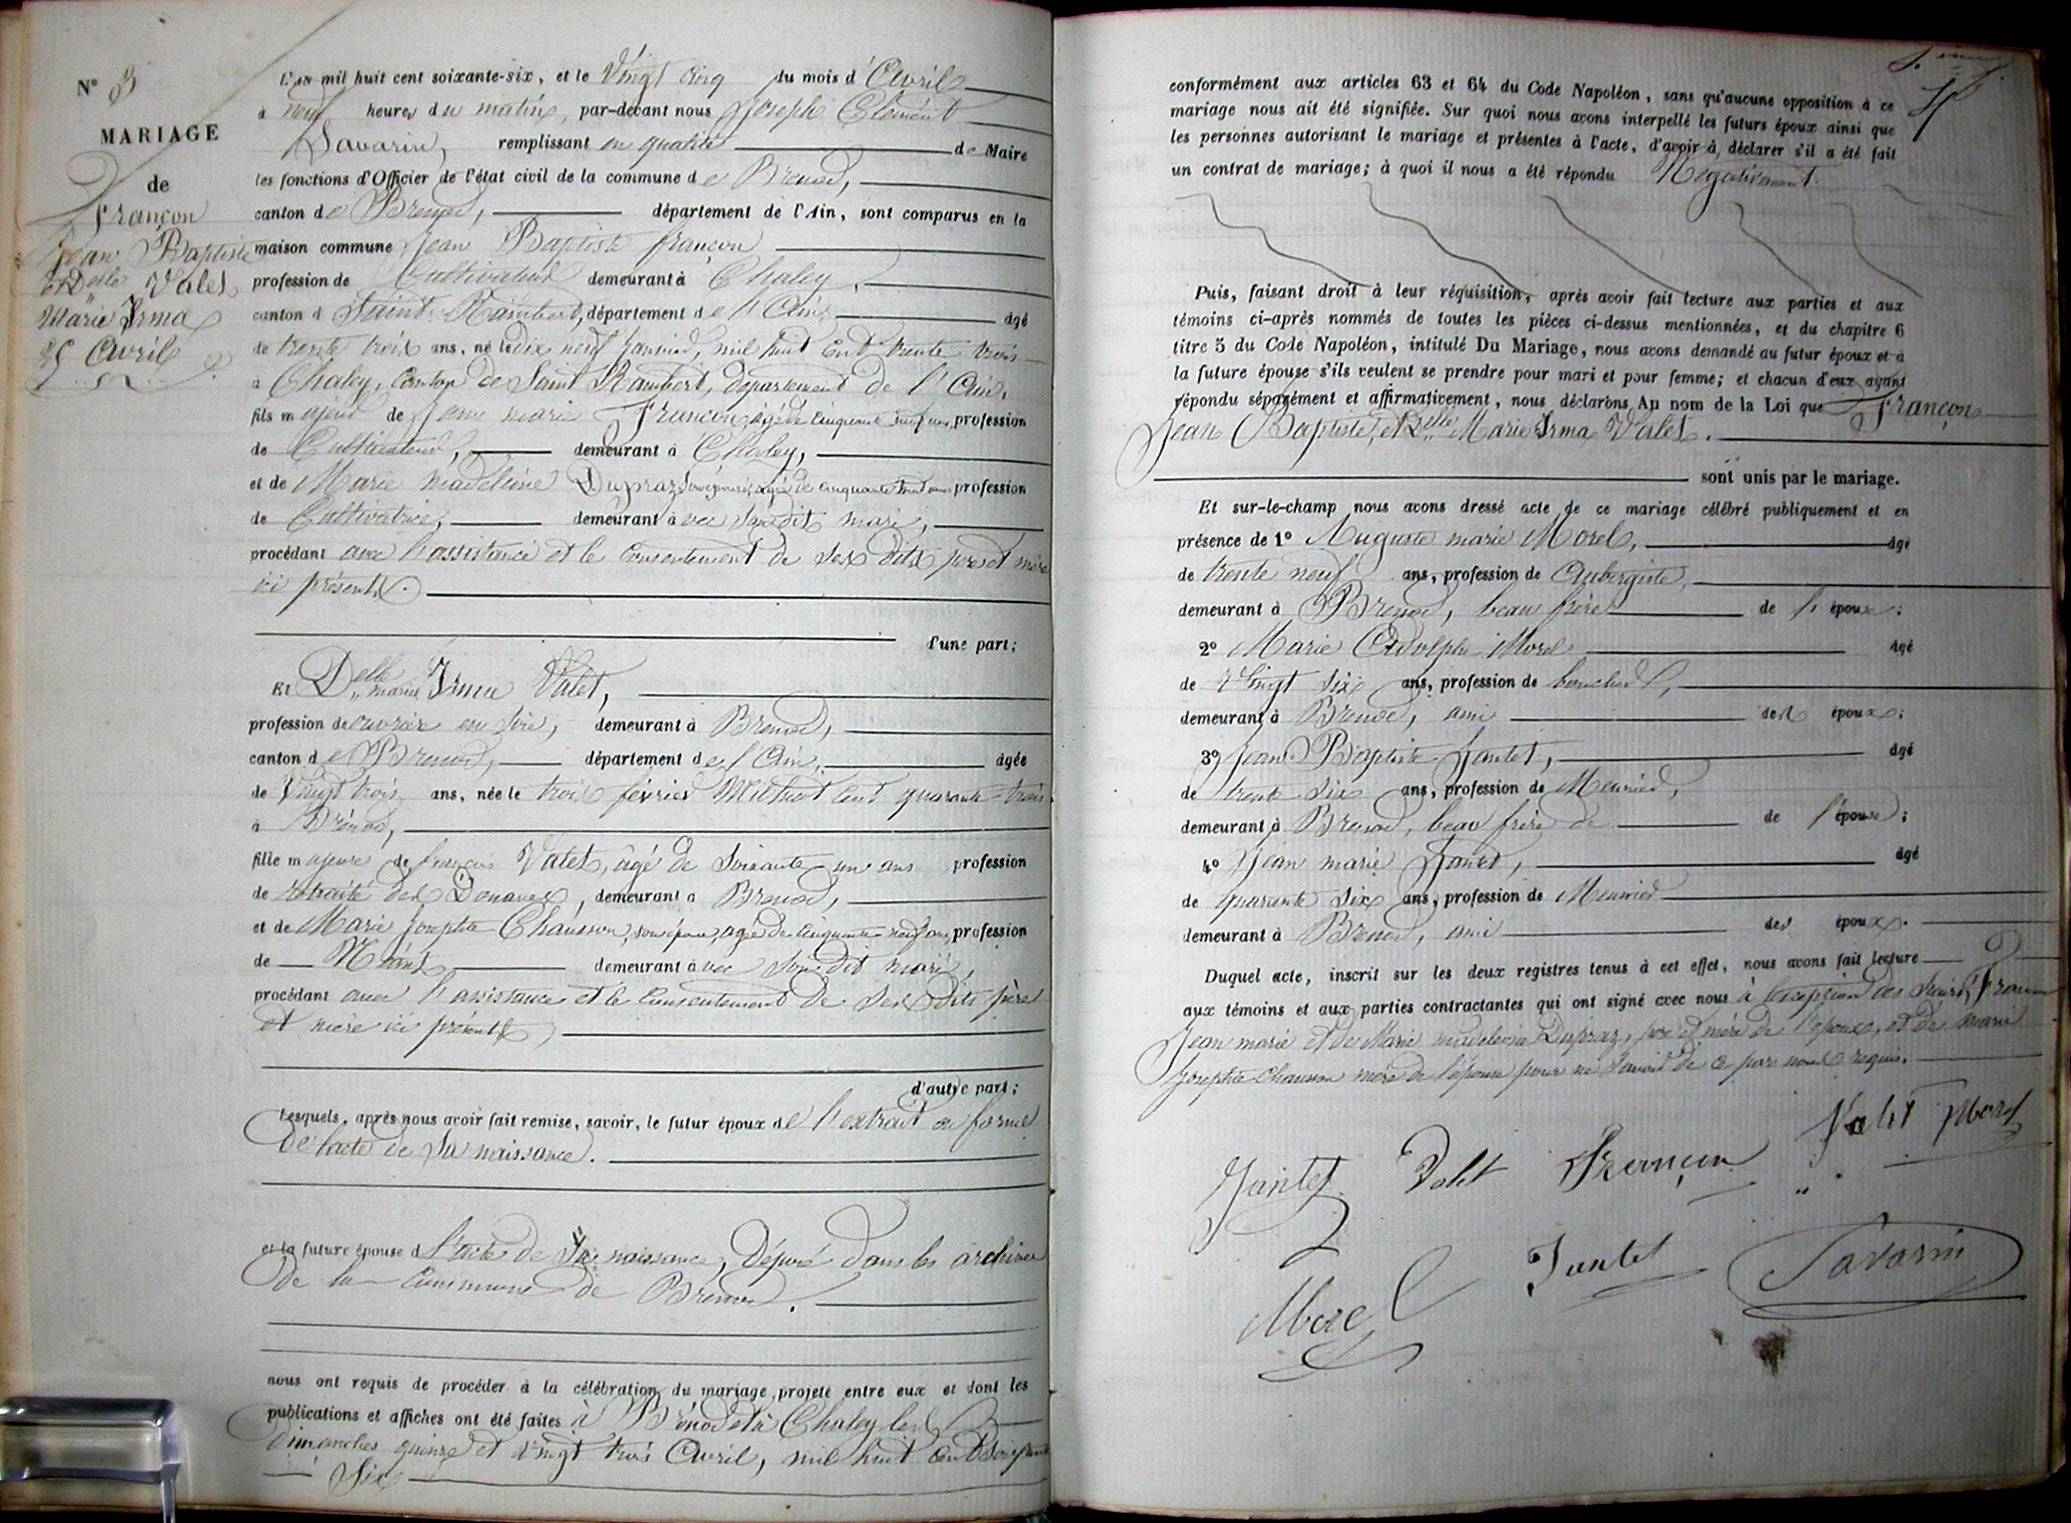 N° 3
MARIAGE
de
françon
Jean Baptiste
et Delle Valet
Marie Irma
25 Avril
L'an mil huit cent soixante-six, et le Vingt cinq du mois d'Avril
à neuf heures du matin, par-devant nous Joseph Clément
Savarin, remplissant en qualité de Maire
les fonctions d'Officier de l'état civil de la commune de Brenod,
canton de Brenod, département de l'Ain, sont comparus en la
maison commune Jean Baptiste françon
profession de Cultivateur demeurant à Chaley,
canton d Saint Rambert, département de l'Ain, âgé
de trente trois ans, né le dix neuf Janvier, mil huit Cent trente trois
à Chaley, Canton de Saint Rambert, département de l'Ain,
fils majeur de Jean marie Françon, âgé de Cinquante neuf ans, profession
de Cultivateur, demeurant à Chaley,
et de Marie Madeleine Dupraz, son épouse, âgée de cinquante ans profession
de Cultivatrice, demeurant avec son dit mari,
procédant avec l'assistance et le Consentement de ses dits père et mère
ici présents.
d'une part;
Et Delle marie Irma Valet,
profession de ouvrière en soie, demeurant à Brenod,
canton de Brenod, département de l'Ain, âgée
de Vingt trois ans, née le trois février Mil huit Cent quarante-trois
à Brénod,
fille majeure de françois Valet, âgé de Soixante-un ans profession
de retraité des Douanes, demeurant à Brenod,
et de Marie Josephte Chausson, son épouse, âgée de Cinquante-neuf ans, profession
de Néant demeurant avec son dit mari,
procédant avec l'assistance et le Consentement de ses dits père
et mère ici présents
d'autre part;
Lesquels, après nous avoir fait remise, savoir, le futur époux de l'extrait en forme
de l'acte de sa naissance.
et la future épouse d l'acte de sa naissance, déposé dans les archives
de la Commune de Brenod.
nous ont requis de procéder à la célébration du mariage projeté entre eux et dont les
publications et affiches ont été faites à Brénod et à Chaley les
dimanches quinze et vingt trois Avril, mil huit Cent Soixante
Six
conformément aux articles 63 et 64 du Code Napoléon, sans qu'aucune opposition à ce
mariage nous ait été signifiée. Sur quoi nous avons interpellé les futurs époux ainsi que
les personnes autorisant le mariage et présentes à l'acte, d'avoir à déclarer s'il a été fait
un contrat de mariage; à quoi il nous a été répondu Négativement.
Puis, faisant droit à leur réquisition, après avoir fait lecture aux parties et aux
témoins ci-après nommés de toutes les pièces ci-dessus mentionnées, et du chapitre 6
titre 5 du Code Napoléon, intitulé Du Mariage, nous avons demandé au futur époux et à
la future épouse s'ils veulent se prendre pour mari et pour femme; et chacun d'eux ayant
répondu séparément et affirmativement, nous déclarons Au nom de la Loi que Françon
Jean Baptiste, et Delle Marie Irma Valet.
sont unis par le mariage.
Et sur-le-champ nous avons dressé acte de ce mariage célébré publiquement et en
présence de 1° Auguste marie Morel, âgé
de trente neuf ans, profession de Aubergiste,
demeurant à Brenod, beau frère de l'épouse;
2° Marie Adolphe Morel âgé
de Vingt six ans, profession de boucher,
demeurant à Brenod, ami des époux;
3° Jean Baptiste Jantet, âgé
de trente six ans, profession de Meunier,
demeurant à Brenod, beau frère de de l'épouse;
4° Jean marie Jantet, âgé
de quarante six ans, profession de Meunier
demeurant à Brenod, ami des époux.
Duquel acte, inscrit sur les deux registres tenus à cet effet, nous avons fait lecture
aux témoins et aux parties contractantes qui ont signé avec nous à l'exception des Françon
Jean marie et de Marie madeleine Dupraz, père et mère de l'époux, et de marie
Josephte Chausson mère de l'épouse pour ne savoir de ce par nous requis.
Jantet Valet Françon Valet Morel
Morel Jantet Savarin